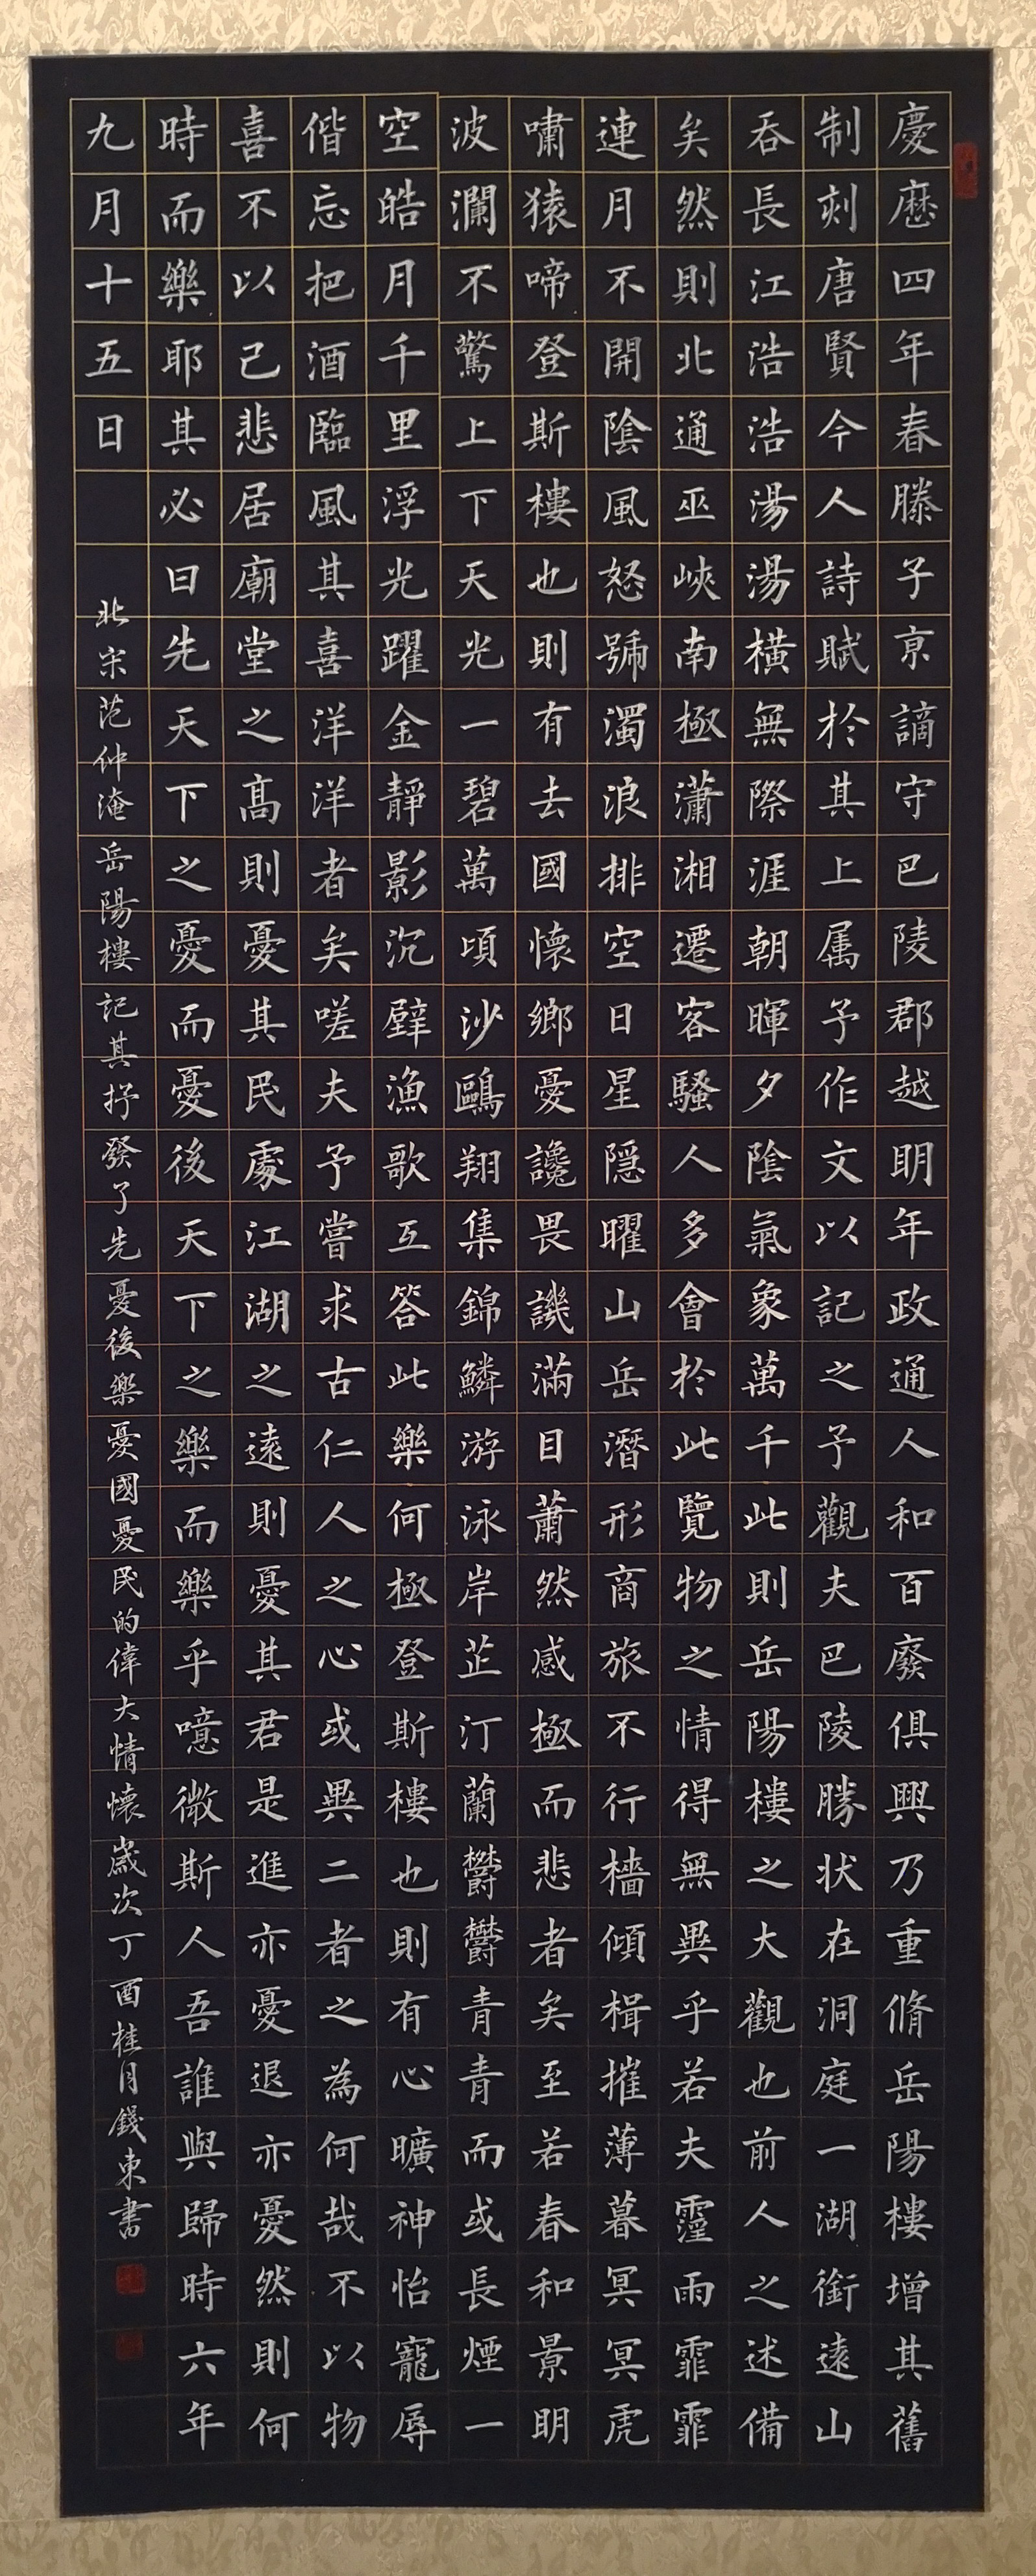 慶厯四年春滕子亰謫守巴陵郡越明年政通人和百廢俱興乃重脩岳陽樓增其舊
制刻唐賢今人詩賦於其上属予作文以記之予觀夫巴陵勝状在洞庭一湖銜遠山
吞長江浩浩湯湯橫無際涯朝暉夕陰氣象萬千此則岳陽樓之大觀也前人之述備
矣然則北通巫峽南極瀟湘遷客騷人多會於此覽物之情得無異乎若夫霪雨霏霏
連月不開陰風怒號濁浪排空日星隱曜山岳潛形商旅不行檣傾楫摧薄暮冥冥虎
嘯猿啼登斯樓也則有去國懷鄉憂讒畏譏滿目蕭然感極而悲者矣至若春和景明
波瀾不驚上下天光一碧萬頃沙鷗翔集錦鱗游泳岸芷汀蘭鬱鬱青青而或長煙一
空皓月千里浮光躍金靜影沉璧漁歌互答此樂何極登斯樓也則有心曠神怡寵辱
偕忘把酒臨風其喜洋洋者矣嗟夫予嘗求古仁人之心或異二者之為何哉不以物
喜不以己悲居廟堂之高則憂其民處江湖之遠則憂其君是進亦憂退亦憂然則何
時而樂耶其必曰先天下之憂而憂後天下之樂而樂乎噫微斯人吾誰與歸時六年
九月十五日
北宋范仲淹岳陽樓記其抒發了先憂後樂憂國憂民的偉大情懷歲次丁酉桂月錢東書